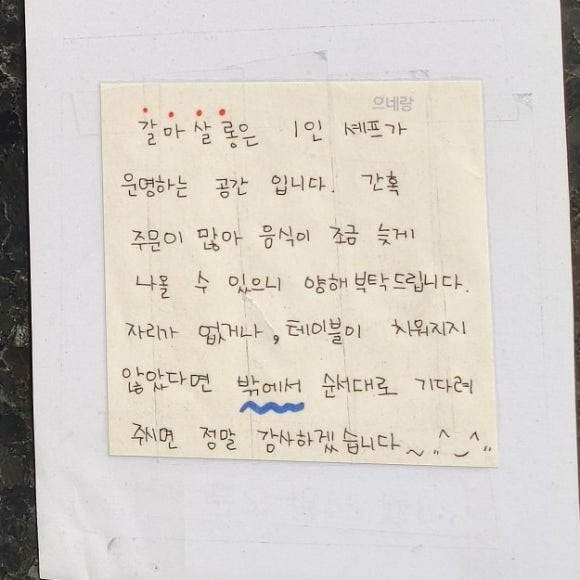 으네랑
갈마살롱은 1인 셰프가
운영하는 공간 입니다. 간혹
주문이 많아 음식이 조금 늦게
나올 수 있으니 양해부탁드립니다.
자리가 없거나, 테이블이 치워지지
않았다면 밖에서 순서대로 기다려
주시면 정말 감사하겠습니다~^‿^